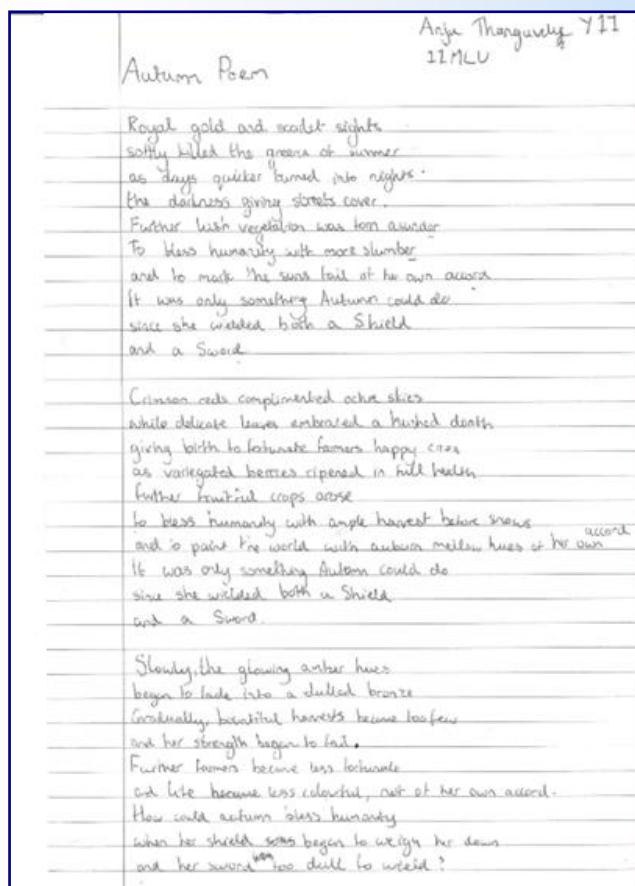 Anju Thanguvelu Y11
11MLU
Autumn Poem
Royal gold and scarlet sights
softly killed the greens of summer
as days quicker turned into nights.
the darkness giving streets cover.
Further lush vegetation was torn asunder
To bless humanity with more slumber
and to mark the suns fall of her own accord.
It was only something Autumn could do
since she wielded both a Shield
and a Sword
Crimson reds complimented ochre skies
while delicate leaves embraced a hushed death
giving birth to fortunate farmers happy cries
as variegated berries ripened in full health
further fruitful crops arose
to bless humanity with ample harvest before snows
and to paint the world with auburn mellow hues of her own accord
It was only something Autumn could do
since she wielded both a Shield
and a Sword.
Slowly, the glowing amber hues
began to fade into a dulled bronze
Gradually, bountiful harvests became too few
and her strength began to fail.
Further farmers became less fortunate
and life became less colourful, not of her own accord.
How could autumn bless humanity
when her shield began to weigh her down
and her sword was too dull to wield?